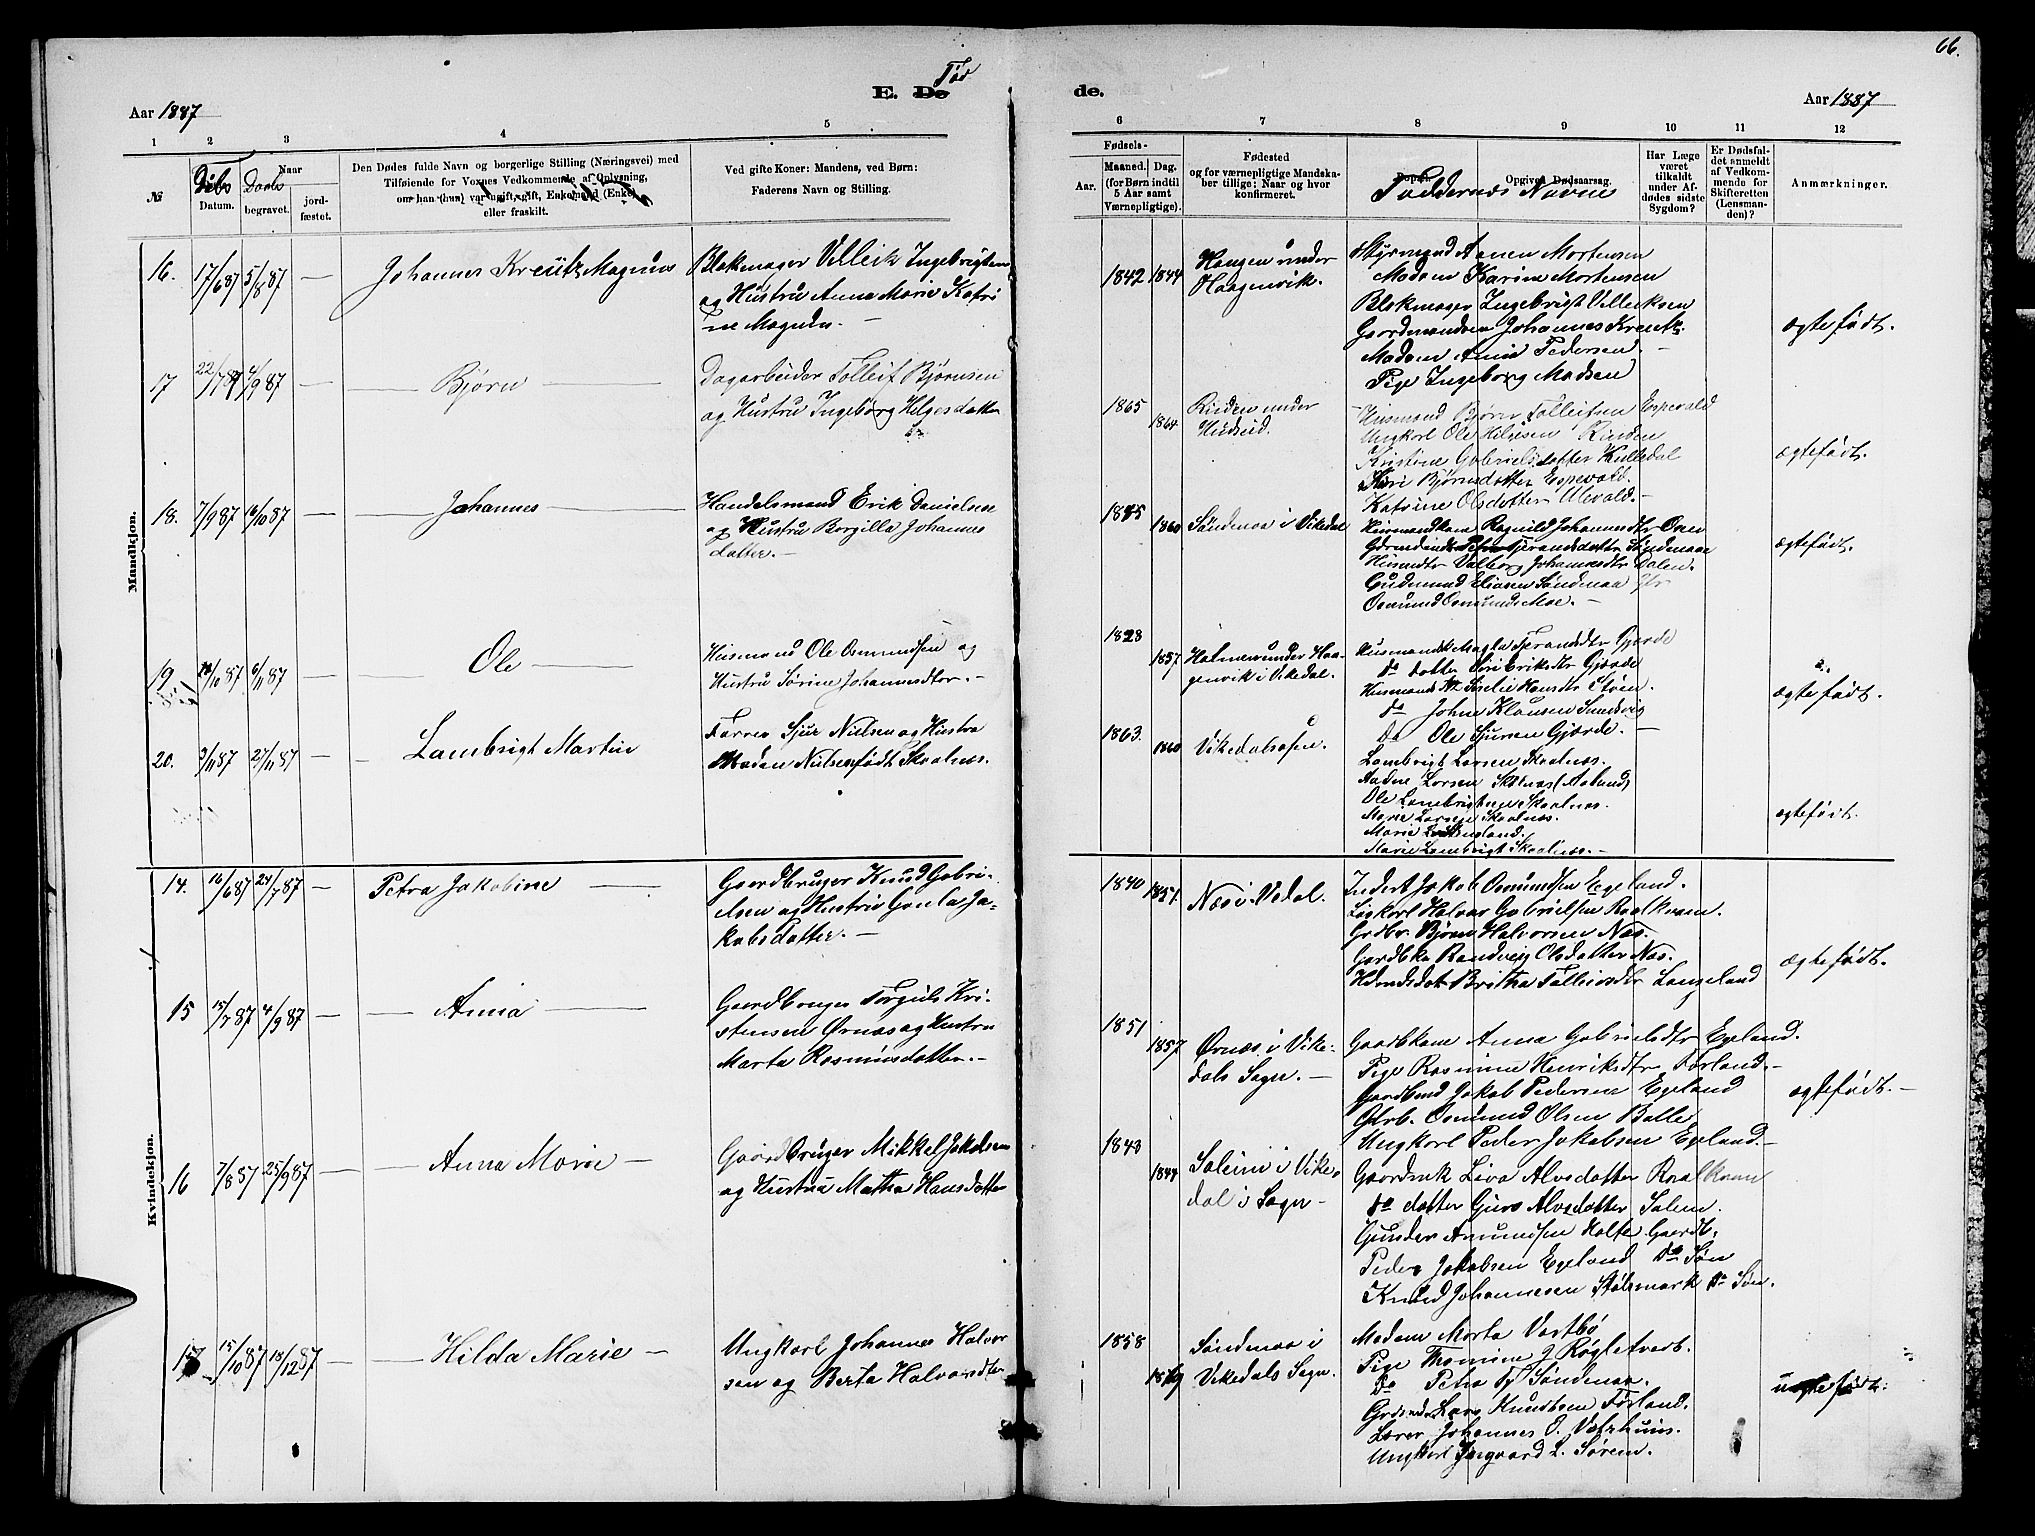 66.
Aar 1887
E. De
Fød
de.
Aar 1887
1 2 3 4 5 6 7 8 9 10 11 12
№
Datum.
Fødsels
Naar
Daabs
begravet.
jord-
fæstet.
Den Dødes fulde Navn og borgerlige Stilling (Næringsvei) med
Tilføiende for Voxnes Vedkommende af Oplysning,
om han (hun) var ugift, gift, Enkemand (Enke)
eller fraskilt.
Ved gifte Koner: Mandens, ved Børn:
Faderens Navn og Stilling.
Fødsels-
Aar.
Maaned.
(for Børn indtil
5 Aar samt
Værnepligtige).
Dag.
Fødested
og for værnepligtige Mandska-
ber tillige: Naar og hvor
konfirmeret.
Opgiven Dødsaarsag.
Faddernes Navne
Har Læge
været
tilkaldt
under Af-
dødes sidste
Sygdom?
Er Dødsfal-
det anmeldt
af Vedkom-
mende for
Skifteretten
(Lensman-
den)?
Anmærkninger.
Mandkjøn.
16. 17/6 87 5/8 87 — Johannes Kreutz Magnus
Blokmager Villeik Ingebrigtsen
og Hustru Anna Marie Katri
ne Magnda. —
1842 1844
Haugen under
Haagenvik.
Styrmand Aanen Mortensen
Madam Karine Mortensen
Blokmager Ingebrigt Villeiksen
Gaardmandsøn Johannes Kreutz
Madam Anna Pedersen. —
Pige Ingeborg Madsen
ægtefødt.
17 22/7 87 4/9 87 — Bjørn —
Dagarbeider Tolleif Bjørnsen
og Hustru Ingeborg Helgesdatter
1865 1864
Rinden under
Hudseid.
Husmand Bjørn Tolleifsen Espevold
Ungkarl Ole Helgesen Rinden
Kristine Gabrielsdatter Kulledal
Kari Bjørnsdatter Espevold.
Katrine Olsdatter Ulevold. —
ægtefødt.
18. 7/9 87 16/10 87 — Johannes —
Handelsmand Erik Danielsen
og Hustru Borgilla Johannes
datter. —
1860
Søndenaa i Vikedal
Ragnild Johannesdtr
Valborg Johannesdtr Dalen.
Gudmund Eliasen Søndenaa
Osmund Osmunds Moe. —
ægtefødt.
19 6/11 87 — Ole —
Husmand Ole Osmundsen og
Hustru Sørine Johannesdtr. —
1828 1857
Holmen under Haa-
genvik i Vikedal.
Husmandsk Magla Tjerandsdtr Gjerde
do datter Siri Eriksdtr Gjerde
Hansdtr Støen.
do Johne Klausen Sandvig
Do Ole Sjursen Gjerde. —
ægtefødt.
20. 3/11 87 27/11 87 Lambrigt Martin
Farver Sjur Nielsen og Hustru
Madam Nielsen født Skaalnæs.
1863. 1860
Vikedalsøen.
Lambrigt Larsen Skaalnæs.
Aadne Larsen
Ole Lambrigtsen Skaalnæs.
Marie Larsen Skaalnæs.
Marie Lambrigt Skaalnæs. —
ægtefødt.
Kvindekjøn.
14. 16/6 87 24/7 87 — Petra Jakobine —
Gaardbruger Knud Gabri-
elsen og Hustru Gunla Ja-
kobsdatter. —
1840 1851.
Næs i Vedal.
Inderst Jakob Osmundsen Egeland.
Løskarl Halvor Gabrielsen Raalkvam.
Grdbr. Bjørn Halvorsen Næs.
Gardbke Randveig Olsdatter Næs.
Britha Tolleivsdtr Langeland
ægtefødt.
15 15/7 87 4/9 87 — Anna —
Gaardbruger Torgils Kri-
stensen Ørnæs og Hustru
Marta Rasmusdatter. —
1851 1857
Ørnæs i Vike-
dals Sogn. —
Gaardkone Anna Gabrielsdtr Egeland.
Pige Rasmine Henriksdtr Førland. —
Gaardmd Jakob Pedersen Egeland
Grb. Osmund Olsen Balle
Ungkarl Peder Jakobsen Egeland. —
ægtefødt. —
16 7/8 87 25/9 87 — Anna Marie —
Gaardbruger Mikkel Jakobsen
og Hustru Martha Hansdatter
1843 1844
Saleim i Vike-
dal i Sogn —
Liva Alvsdatter Raalkvam
do datter Guro Alvsdatter Salem.
Gunder Amundsen Holte Gaardb.
Peder Jakobsen Egeland Do Søn
Knud Johannesen Stølsmark do Søn.
17 15/10 87 18/12 87 — Hilda Marie —
Ungkarl Johannes Halvor
sen og Berta Halvorsdtr
1858
Søndenaa i
Vikedals Sogn.
Madam Marta Vestbø
Pige Thomine
Do Petra Søndenaa.
Lars Knudsen Førland.
Lærer Johannes O. Vatshuus.
Ungkarl Ingvard L. Sørem. —
uægtefødt.